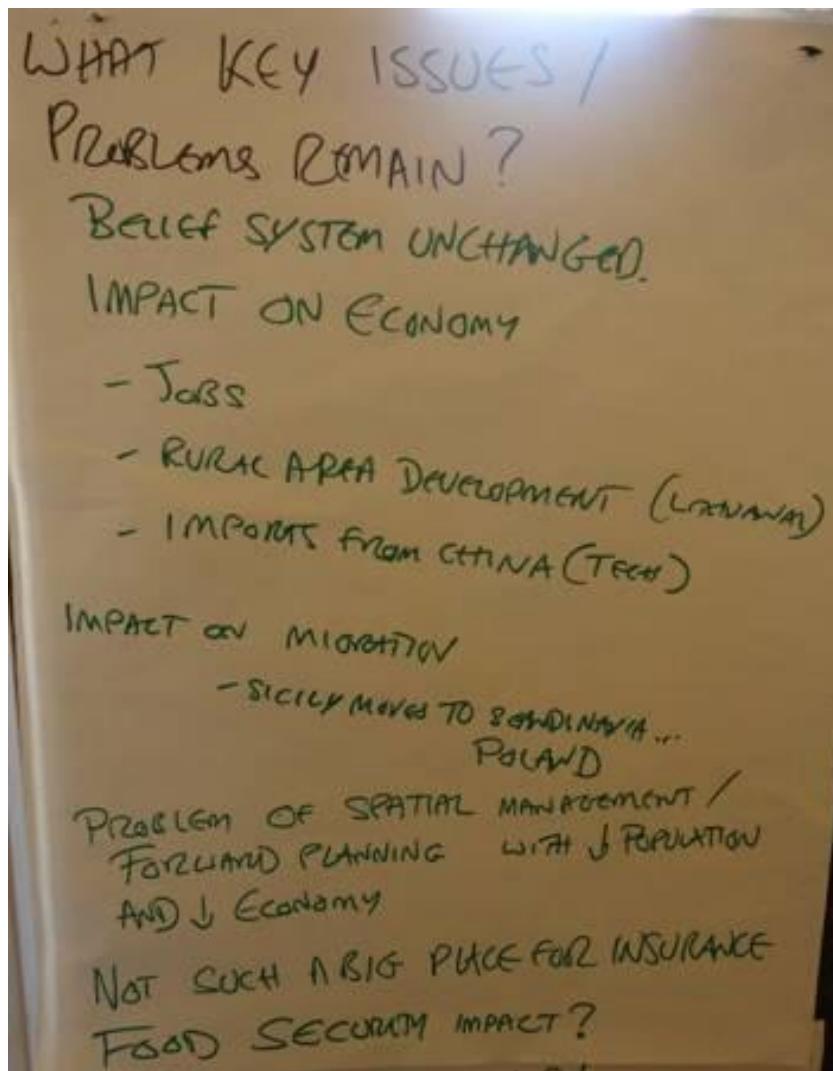 WHAT KEY ISSUES /
PROBLEMS REMAIN?
BELIEF SYSTEM UNCHANGED.
IMPACT ON ECONOMY
- JOBS
- RURAL AREA DEVELOPMENT
- IMPORTS FROM CHINA (TECH)
IMPACT ON MIGRATION
- SICILY MOVES TO SCANDINAVIA...
POLAND
PROBLEM OF SPATIAL MANAGEMENT /
FORWARD PLANNING WITH ↓ POPULATION
AND ↓ ECONOMY
NOT SUCH A BIG PLACE FOR INSURANCE
FOOD SECURITY IMPACT?